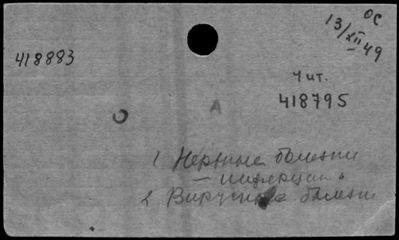 ОС
13/XII 49
418883
Чит.
418795
А
1 Нервные болезни
– инфекции
2 Вирусные болезни